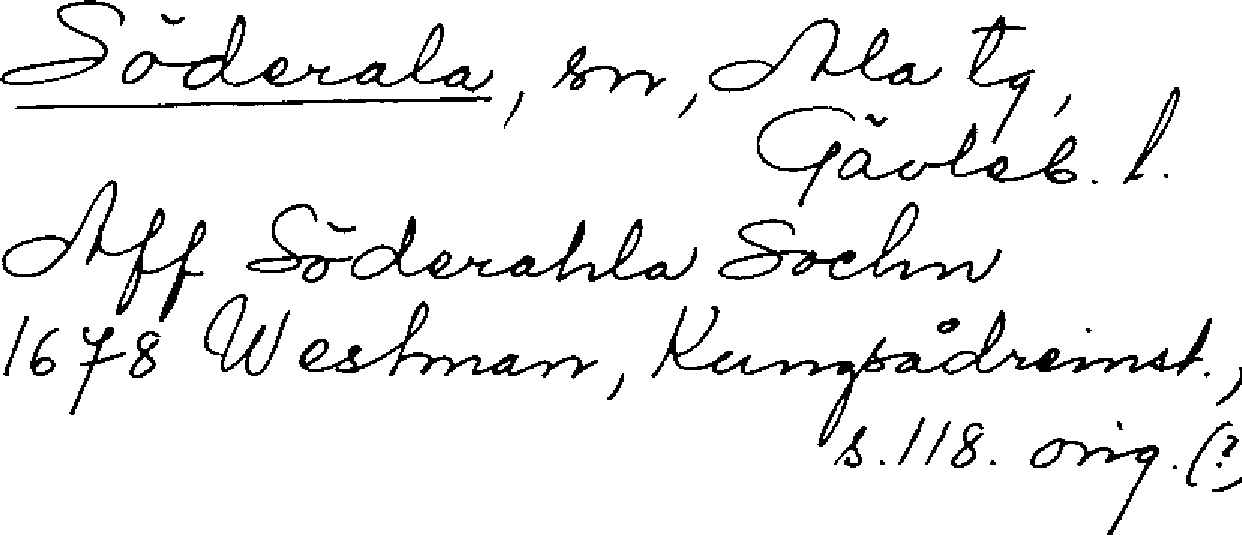 Söderala, sn, Ala tg,
Gävleb. l.
Aff Söderahla Sochn
1678 Westman, Kungsådreinst.,
s. 118. orig. (?)